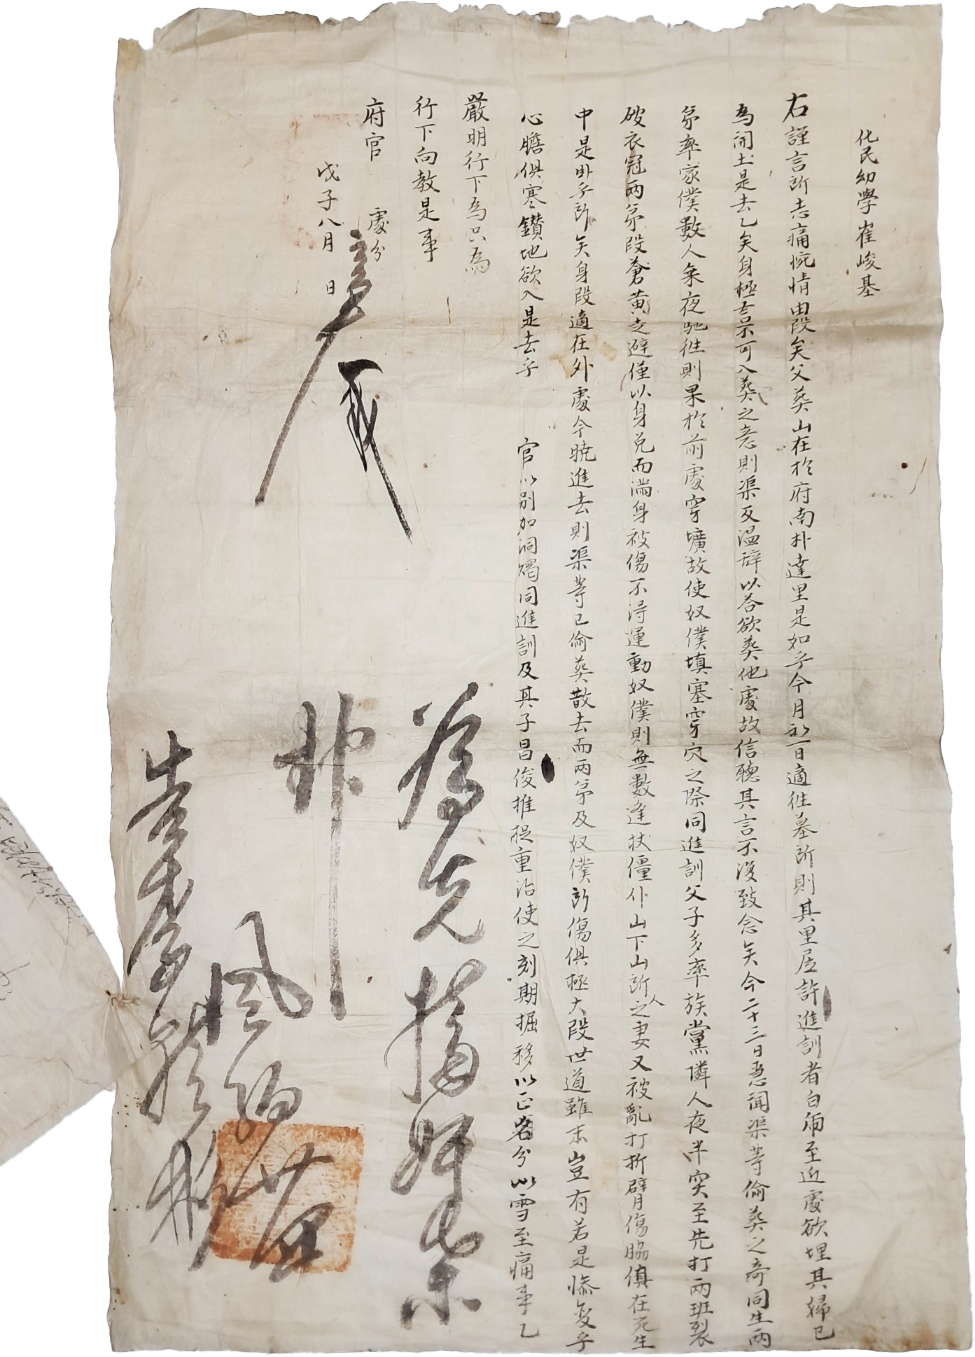 化民幼學崔峻基
右謹言所志痛惋情由段矣父葬山在於府南朴達里是如乎今月初一日適往墓所則其里居許進訓者自局至近處欲埋其婦已
為開土是去乙矣身極言不可入葬之意則渠反溫辭以答欲葬他處故信聽其言不復致念矣今二十三日忽聞渠等偷葬之奇同生兩
弟率家僕數人乘夜馳往則果於前處穿壙故使奴僕填塞穿穴之際同進訓父子多率族黨隣人夜半突至先打兩班裂
破衣冠兩弟段蒼黃走避僅以身免而滿身被傷不得運動奴僕則無數逢杖僵仆山下山所人之妻又被亂打折臂傷脇傎在死生
中是乎所矣身段適在外處今曉進去則渠等已偷葬散去而兩弟及奴僕所傷俱極大段世道雖末豈有若是慘變乎
心膽俱寒鑽地欲入是去乎 官以別加洞燭同進訓及其子昌俊推捉重治使之刻期掘移以正名分以雪至痛事乙
嚴明行下為只為
行下向教是事
府官 處分
戊子八月 日